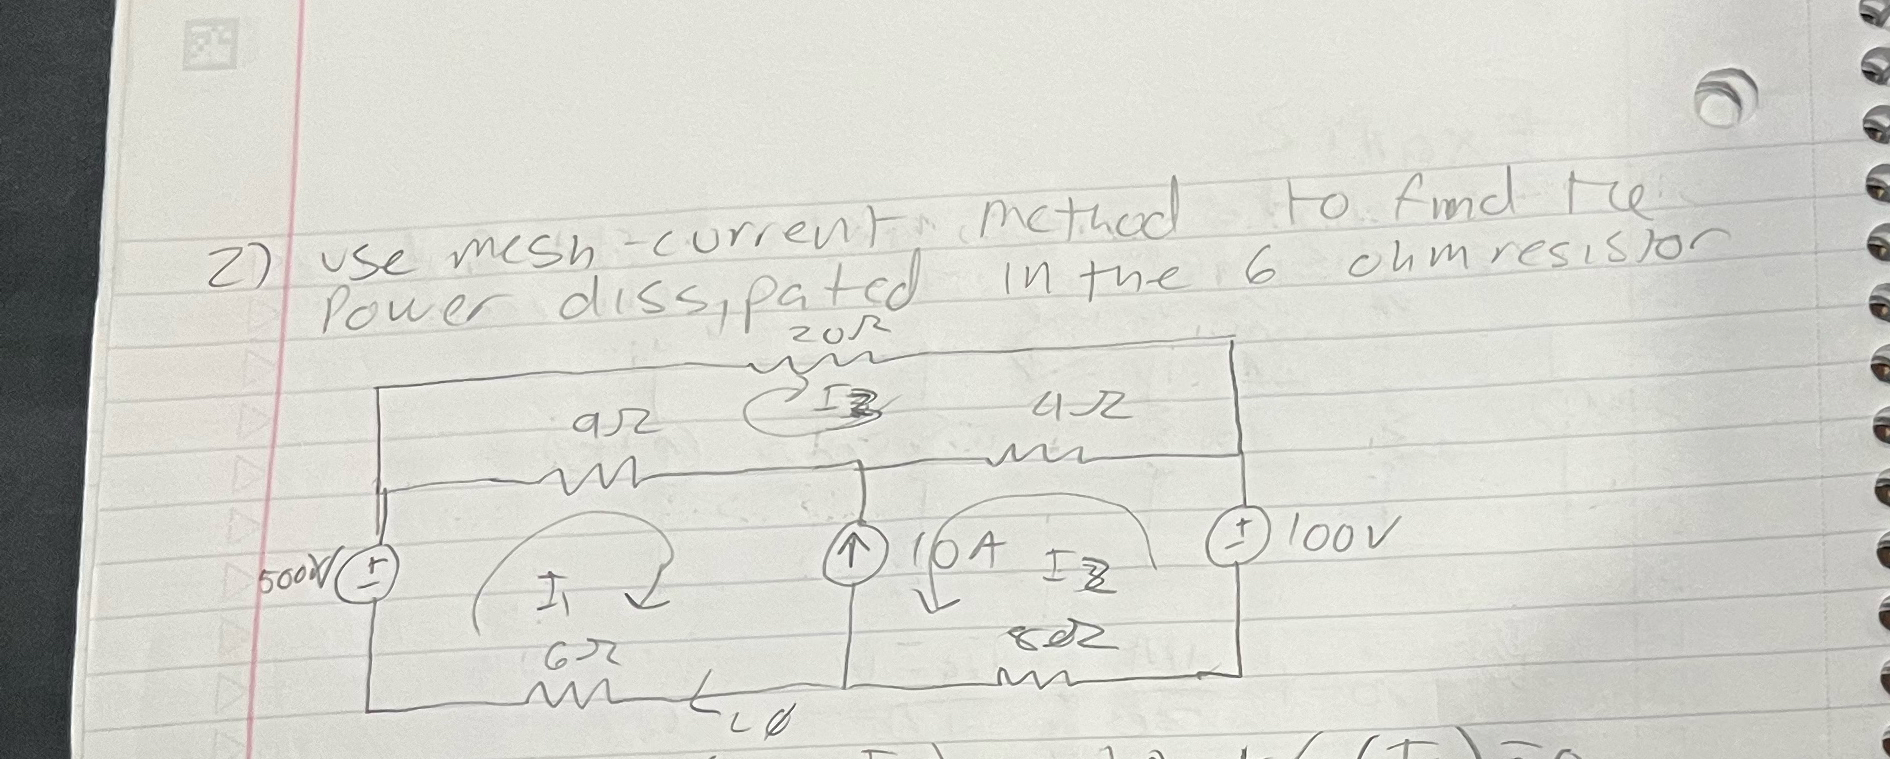 2) use mesh-current method to find the
Power dissipated in the 6 ohm resistor
20Ω
I2
9Ω
4Ω
500V
+
-
10A
+
-
100V
I1
I3
6Ω
8Ω
iø